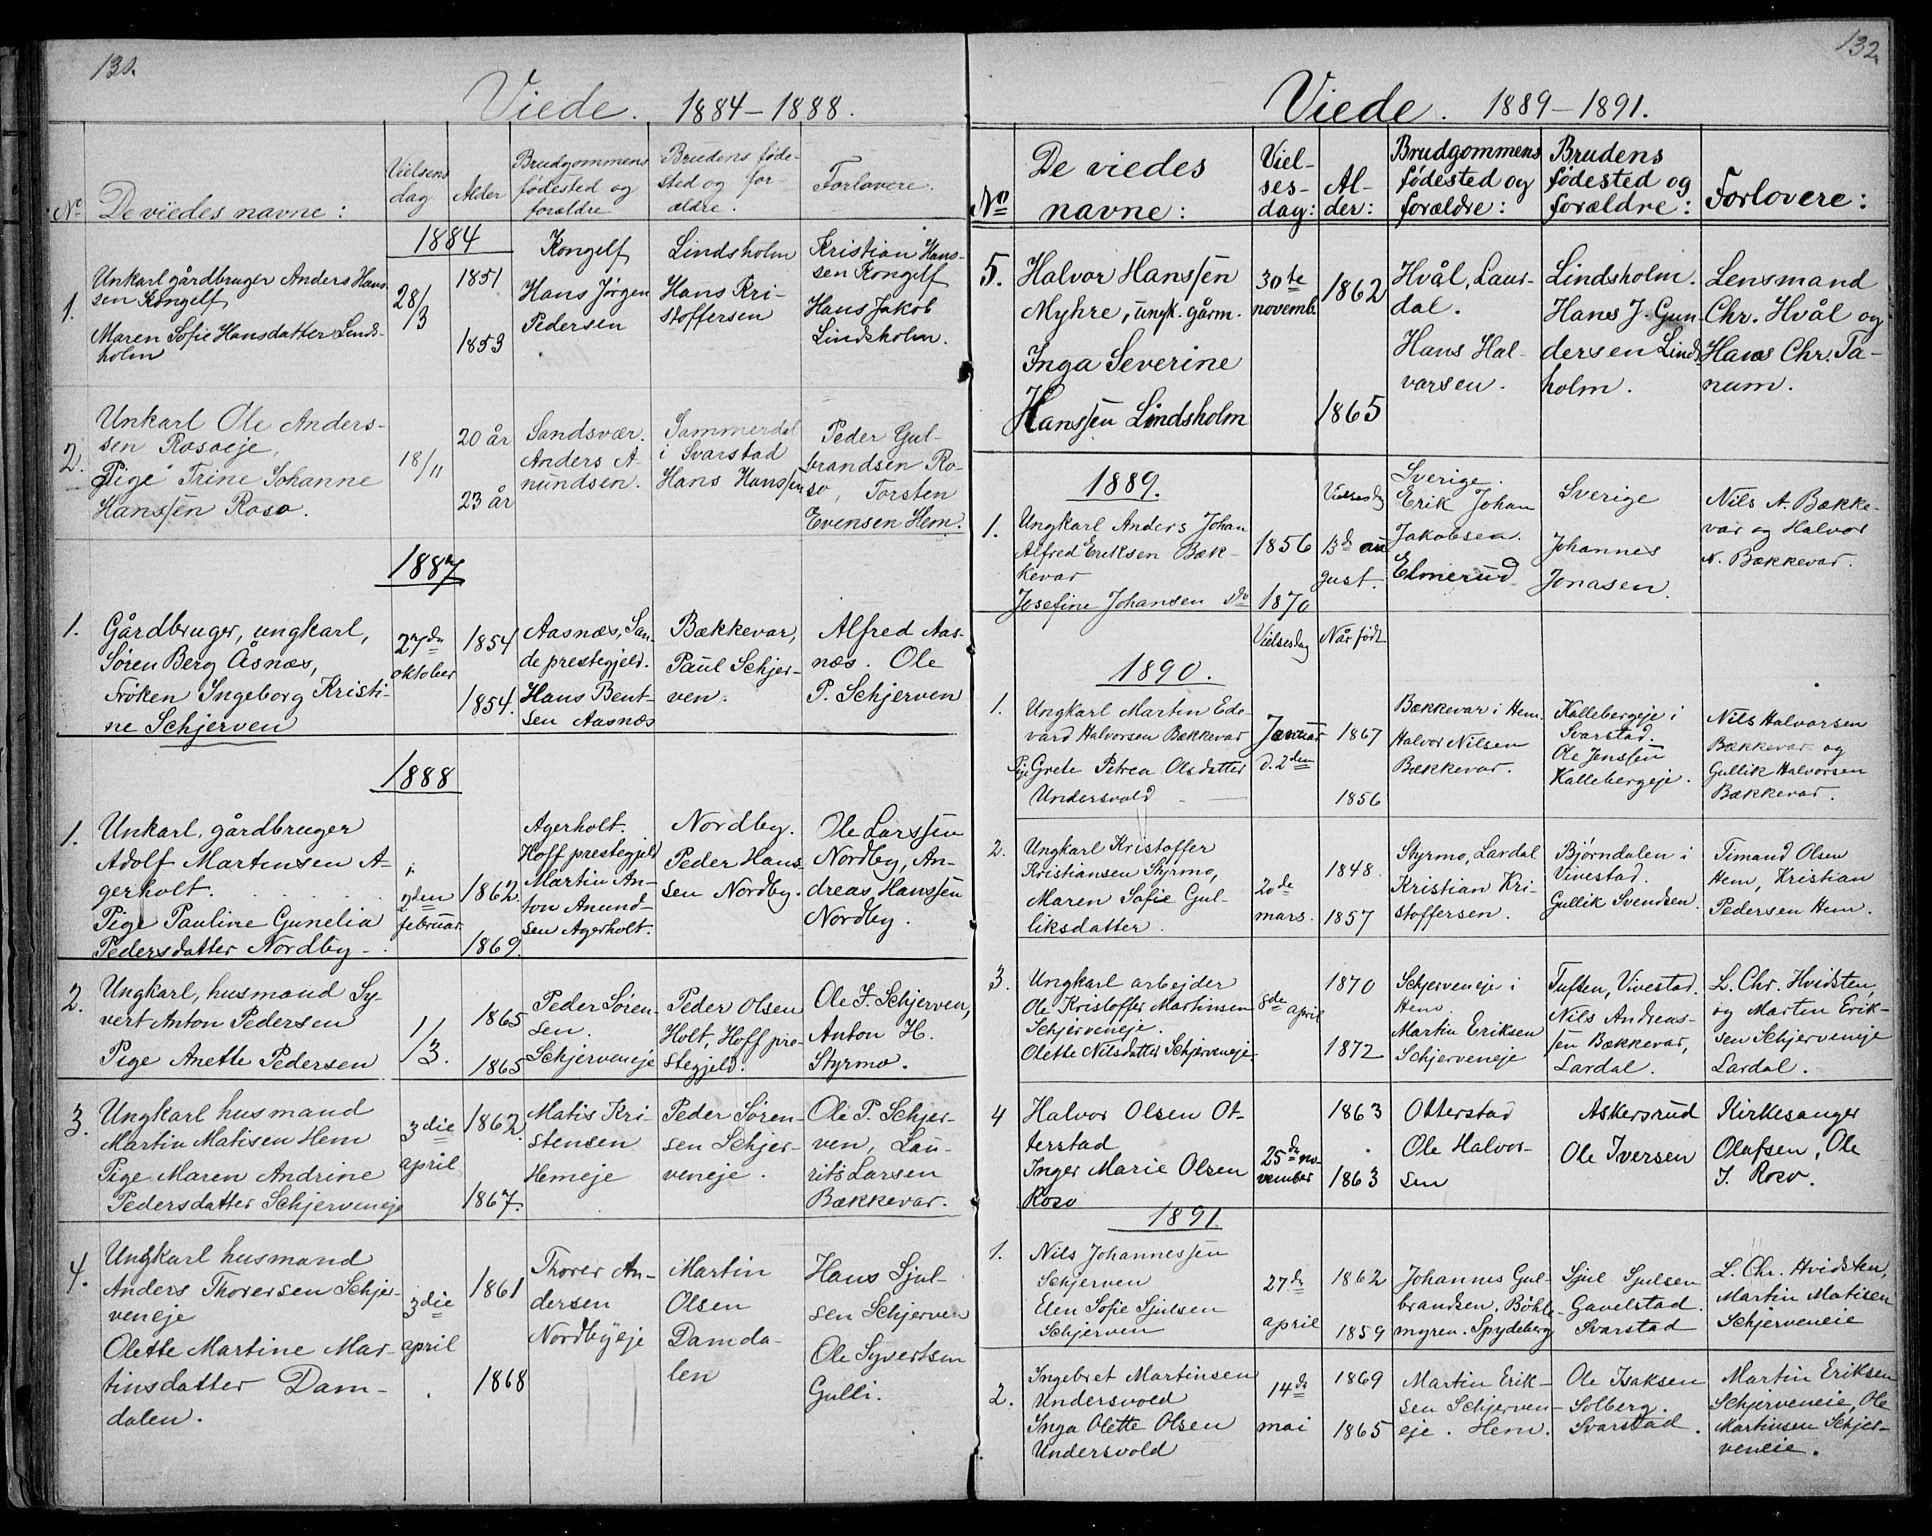 131.
Viede. 1884-1888.
No
De viedes navne:
Vielsens dag
Alder
Brudgommens fødested og forældre
Brudens fødested og forældre.
Forlovere.
1884
1.
Unkarl gårdbruger Anders Hans-
sen Kongelf
Maren Sofie Hansdatter Linds-
holm
28/3
1851
1853
Kongelf
Hans Jørgen
Pedersen
Lindsholm
Hans Kri-
stoffersen
Kristian Hans-
sen Kongelf
Hans Jakob
Lindsholm.
2.
Unkarl Ole Anders-
sen Rosoeje,
Pige Trine Johanne
Hanssen Roso.
18/11
20 år
23 år
Sandsvær.
Anders A-
nundsen.
Sommerdal
i Svarstad
Hans Hanssen
Peder Gul-
brandsen Ro-
so, Torsten
Evensen Hem.
1887
1.
Gårdbruger, ungkarl,
Søren Berg Åsnæs,
Frøken Ingeborg Kristi-
ne Schjerven
27de
oktober
1854
1854.
Aasnæs, San-
de prestegjeld.
Hans Bent-
sen Aasnæs
Bækkevar,
Paul Schjer-
ven.
Alfred Aas-
næs. Ole
P. Schjerven
1888
1.
Unkarl, gårdbruger
Adolf Martinsen A-
gerholt.
Pige Pauline Gunelia
Pedersdatter Nordby
2den
februar
1862
1869.
Agerholt.
Hoff prestegjeld
Martin An-
ton Anund-
sen Agerholt.
Nordby.
Peder Hans-
sen Nordby.
Ole Larssen
Nordby, An-
dreas Hanssen
Nordby.
2.
Ungkarl, husmand Sy-
vert Anton Pedersen
Pige Anette Pedersen
1/3.
1865
1865
Peder Søren-
sen.
Schjerveneje
Peder Olsen
Holt, Hoff pre-
stegjeld.
Ole J. Schjerven,
Anton H.
Styrmo.
3.
Ungkarl husmand
Martin Matisen Hem
Pige Maren Andrine
Pedersdatter Schjerveneje
3die
april
1862
1867.
Matis Kri-
stensen
Hemeje
Peder Søren-
sen Schjer-
veneje.
Ole P. Schjer-
ven, Lau-
rits Larsen
Bækkevar.
4.
Ungkarl husmand
Anders Thoversen Schjer-
veneje
Olette Martine Mar-
tinsdatter Dam-
dalen.
3die
april
1861
1868
Thorer An-
dersen
Nordbyeje
Martin
Olsen
Damda-
len
Hans Sjul-
sen Schjerven
Ole Syvertsen
Gulli.
132.
Viede. 1889-1891.
No
De viedes
navne:
Viel-
ses-
dag:
Al-
der:
Brudgommens
fødested og
forældre:
Brudens
fødested og
forældre:
Forlovere:
5.
Halvor Hanssen
Myhre, ungk. gårm.
Inga Severine
Hanssen Lindsholm
30te
novemb.
1862
1865
Hvål, Laur-
dal.
Hans Hal-
vorsen.
Lindsholm.
Hans J. Gun-
dersen Linds
holm.
Lensmand
Chr. Hvål og
Hans Chr. Ta-
num.
1889.
1.
Ungkarl Anders Johan
Alfred Eriksen Bæk-
kevar
Josefine Johansen do
1856
1870
Vielsesdg
13de au
gust.
Sverige.
Erik Johan
Jakobsen
Elmerud
Sverige
Johannes
Jonasen.
Nils A. Bække-
var og Halvor
N. Bækkevar.
Vielsesdag
Når født
1890.
1.
Ungkarl Martin Ed-
vard Halvorsen Bækkevar
Pige Grete Petrea Olsdatter
Undersvold
Januar
d. 2den
1867
1856
Bækkevar i Hem.
Halvor Nilsen
Bækkevar.
Kallebergeje i
Svarstad.
Ole Jenssen
Kallebergeje.
Nils Halvorsen
Bækkevar og
Gullik Halvorsen
Bækkevar.
2.
Ungkarl Kristoffer
Kristiansen Styrmo,
Maren Sofie Gul-
liksdatter.
20de
mars.
1848.
1857
Styrmo, Lardal
Kristian Kri-
stoffersen.
Bjørndalen i
Vivestad.
Gullik Svendsen.
Timand Olsen
Hem, Kristian
Pedersen Hem.
3.
Ungkarl arbejder
Ole Kristoffer Martinsen
Schjerveneje.
Olette Nilsdatter Schjerveneje
8de april
1870
1872
Schjerveneje i
Hem
Martin Eriksen
Schjerveneje
Tuften, Vivestad.
Nils Andreas-
sen Bækkevar,
Lardal.
L. Chr. Hvidsten,
og Martin Erik-
sen Schjerveneje
Lardal.
4
Halvor Olsen Ot-
terstad
Inger Marie Olsen
Roso
25de no-
vember
1863
1863
Otterstad
Ole Halvor-
sen
Askersrud
Ole Iversen
Kirkesanger
Olafsen, Ole
J. Roso.
1891
1.
Nils Johannessen
Schjerven
Elen Sofie Sjulsen
Schjerven
27de
april
1862
1859
Johannes Gul-
brandsen, Bøhle-
myren. Spydeberg
Sjul Sjulsen
Gavelstad.
Svarstad
L. Chr. Hvidsten,
Martin Matisen
Schjerveneie
2.
Ingebret Martinsen
Undersvold
Inga Olette Olsen
Undersvold
14de
mai
1869
1865
Martin Erik-
sen Schjerven-
eje. Hem.
Ole Isaksen
Solberg.
Svarstad.
Martin Eriksen
Schjerveneie, Ole
Martinsen Schjer-
veneie.